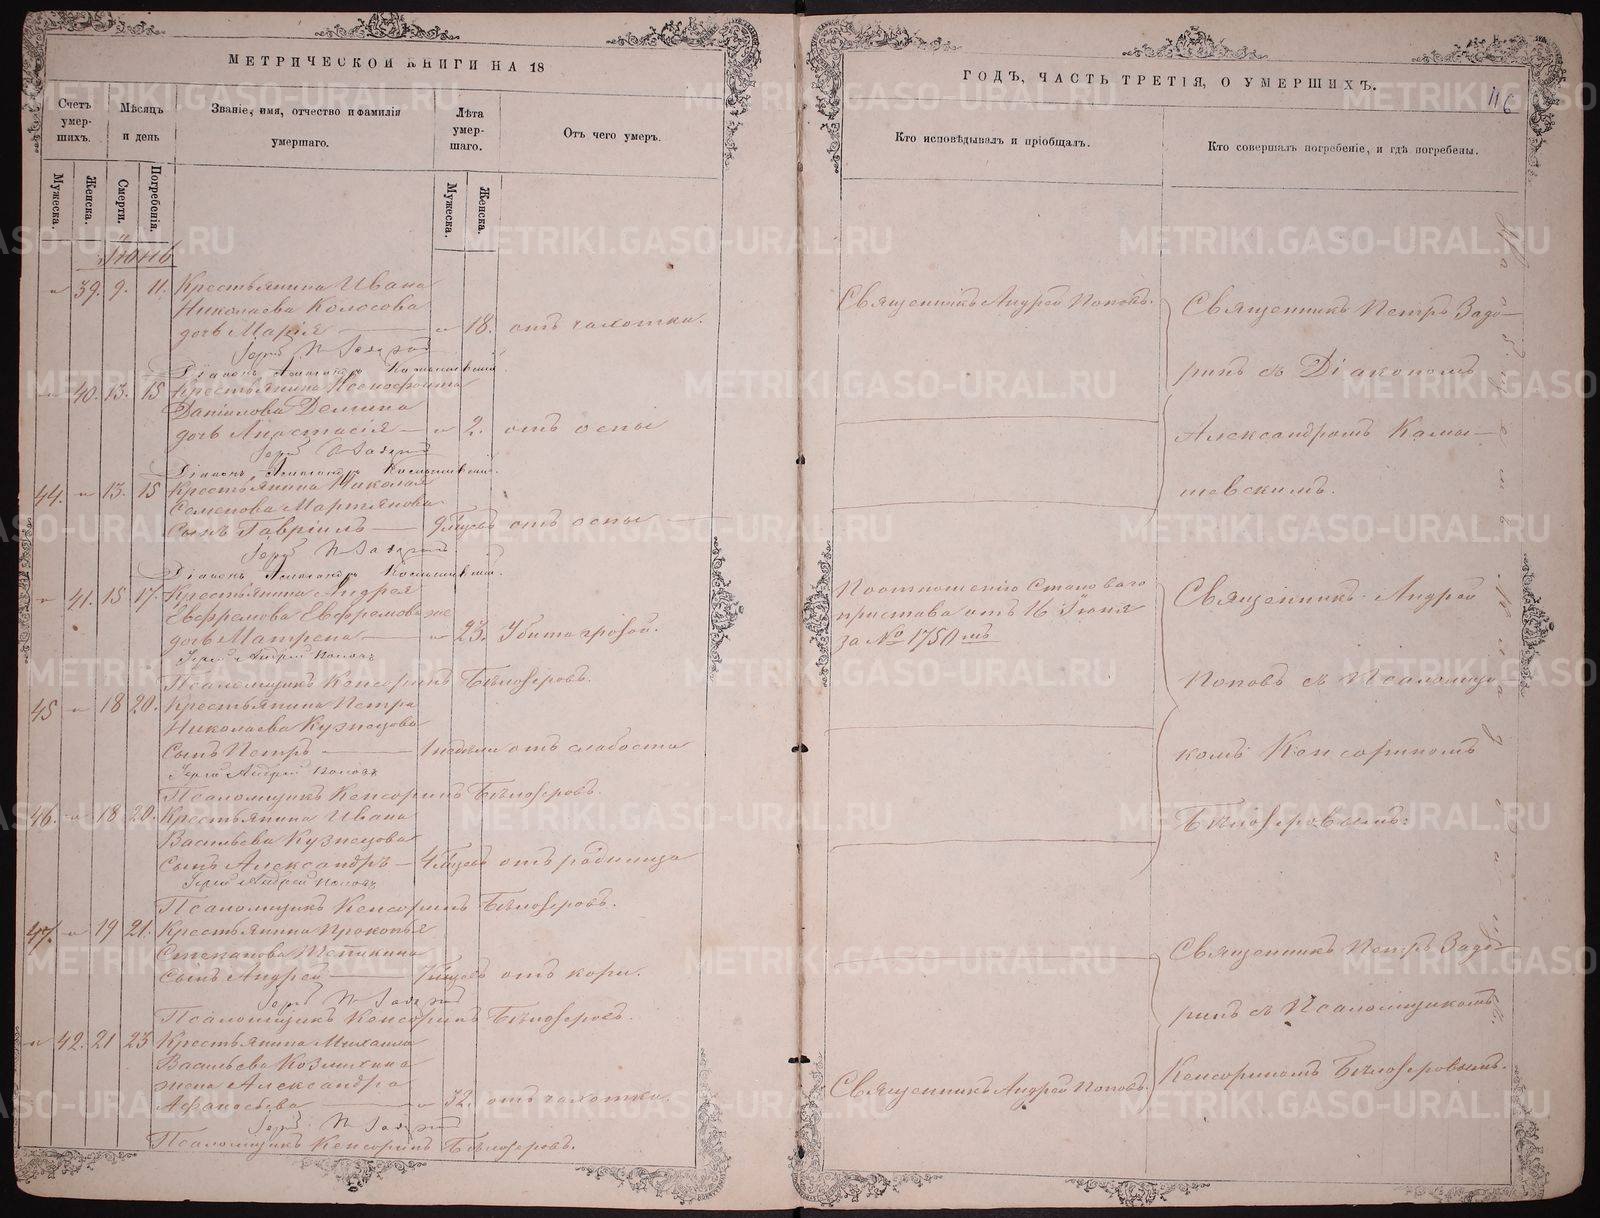 МЕТРИЧЕСКОЙ КНИГИ НА 18
Счетъ умер-шихъ.
Мѣсяцъ и день
Званіе, имя, отчество и фамилія умершаго.
Лѣта умер-шаго.
Отъ чего умеръ.
Мужеска.
Женска.
Смерти.
Погребенія.
Мужеска.
Женска.
Іюнь
" 39. 9. 11. Крестьянина Ивана
Николаева Колосова
дочь Марія — " 18. отъ чахотки.
Діаконъ Александръ Камышевскій.
" 40. 13. 15 Крестьянина Ксенофонта
Даніилова Демина
дочь Анастасія — " 2. отъ оспы
Діаконъ Александръ Камышевскій.
44. " 13. 15 Крестьянина Николая
Семенова Мартьянова
сынъ Гавріилъ — 9 мѣсяцъ отъ оспы
Діаконъ Александръ Камышевскій.
" 41. 15 17. Крестьянина Андрея
Евфремова Евфремова же
дочь Матрена — " 23. Убита грозой.
Іерей Андрей Поповъ
Псаломщикъ Кенсоринъ Бѣлозеровъ.
45 " 18 20. Крестьянина Петра
Николаева Кузнецова
сынъ Петръ — 1 недѣли отъ слабости
Іерей Андрей Поповъ
Псаломщикъ Кенсоринъ Бѣлозеровъ.
46. " 18 20. Крестьянина Ивана
Васильева Кузнецова
сынъ Александръ — 4 мѣсяцъ отъ родимца
Іерей Андрей Поповъ
Псаломщикъ Кенсоринъ Бѣлозеровъ.
47. " 19 21. Крестьянина Прокопья
Степанова
сынъ Андрей отъ кори.
Псаломщикъ Кенсоринъ Бѣлозеровъ.
" 42. 21 23 Крестьянина Михаила
Васильева
жена Александра
Афанасьева — " 32. отъ чахотки.
Псаломщикъ Кенсоринъ Бѣлозеровъ.
ГОДЪ, ЧАСТЬ ТРЕТІЯ, О УМЕРШИХЪ.
116
Кто исповѣдывалъ и пріобщалъ.
Кто совершалъ погребеніе, и гдѣ погребены.
Священникъ Андрей Поповъ.
По отношенію Становаго
пристава отъ 16 Іюня
за № 1750 мъ
Священникъ Андрей Поповъ.
Священникъ Петръ Задо-
ринъ съ Діакономъ
Александромъ Камы-
шевскимъ.
Священникъ Андрей
Поповъ съ Псаломщи
комъ Кенсориномъ
Бѣлозеровымъ.
Священникъ Петръ Задо-
ринъ съ Псаломщикомъ
Кенсориномъ Бѣлозеровымъ.
METRIKI.GASO-URAL.RU